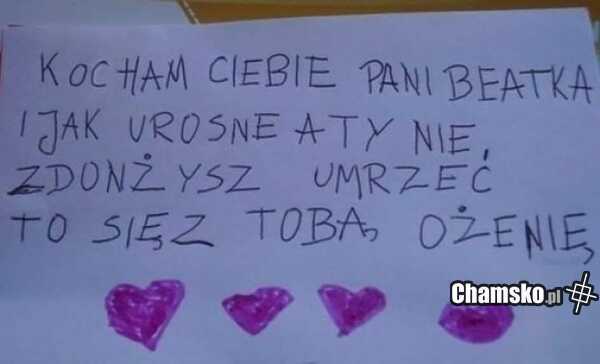 KOCHAM CIEBIE PANI BEATKA
I JAK UROSNE A TY NIE
ZDONŻYSZ UMRZEĆ
TO SIĘ Z TOBĄ OŻENIĘ
Chamsko.pl